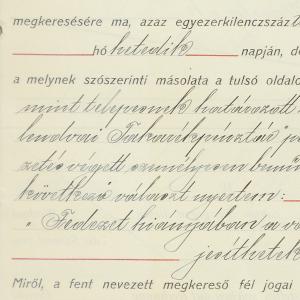 megkeresésére ma, azaz egyezerkilenczszáz
hó hetedik napján, de
a melynek szószerinti másolata a tulsó oldalo
mint telepesnek határozott
lendvai Takarékpénztár
zetés végett személyesen
következő választ nyertem:
„Fedezet hiányában a
jesíthetek
Miről, a fent nevezett megkereső fél jogai